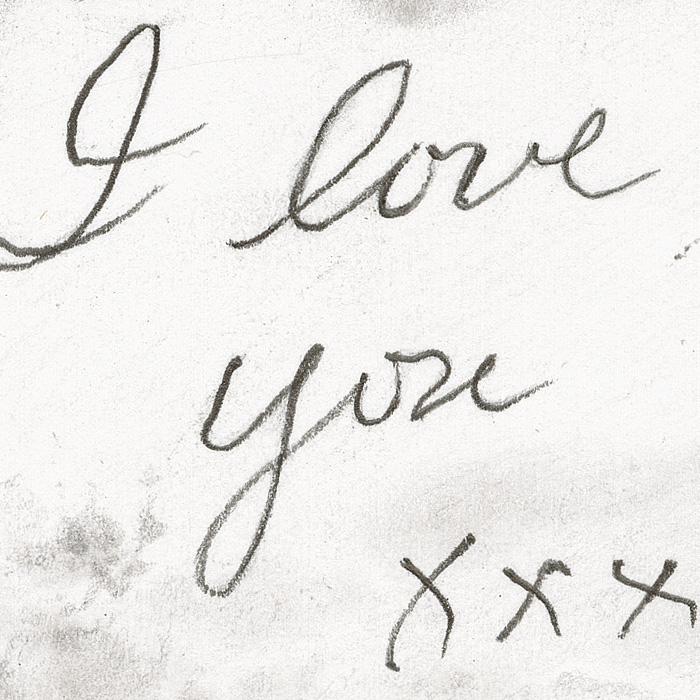 I love
you
xxx